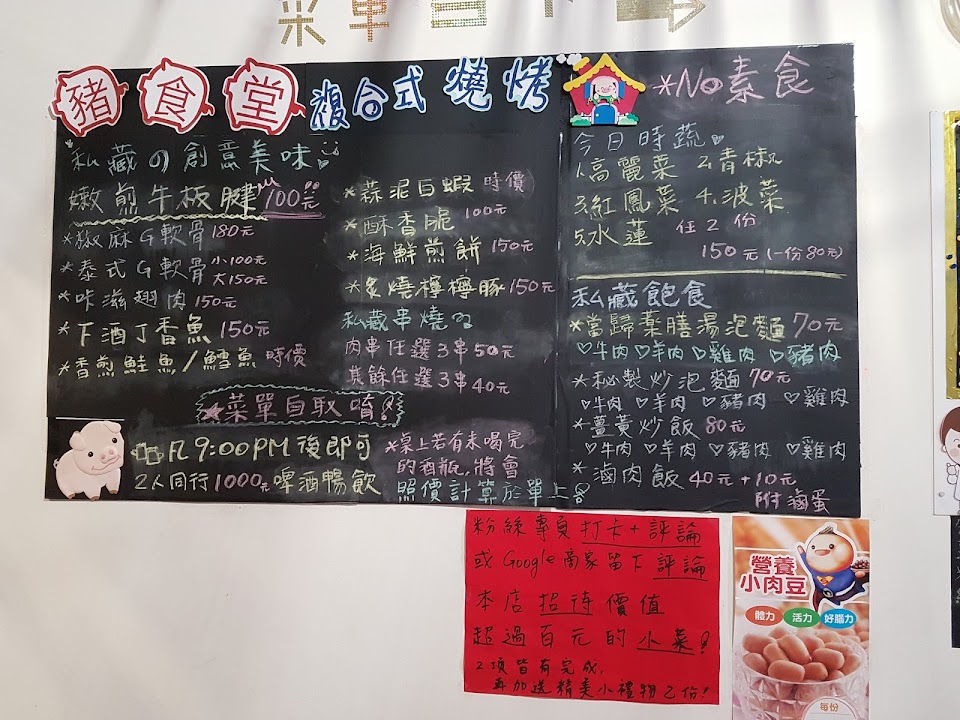 菜單自取
豬食堂 複合式 燒烤
私藏の創意美味
嫩煎牛板腱 100元
*椒麻G軟骨 180元
*泰式G軟骨 小100元
大150元
*咔滋翅肉 150元
*下酒丁香魚 150元
*香煎鮭魚/鱈魚 時價
*蒜泥白蝦 時價
*酥香脆 100元
*海鮮煎餅 150元
*炙燒檸檸豚 150元
私藏串燒
肉串任選3串50元
其餘任選3串40元
*菜單自取唷!
凡9:00PM後即可
2人同行1000元啤酒暢飲
*桌上若有未喝完
的酒瓶,將會
照價計算於單上
*No素食
今日時蔬
1.高麗菜 2.青椒
3.紅鳳菜 4.波菜
5.水蓮 任2份
150元(一份80元)
私藏飽食
*當歸藥膳湯泡麵 70元
♡牛肉 ♡羊肉 ♡雞肉 ♡豬肉
*秘製炒泡麵 70元
♡牛肉 ♡羊肉 ♡豬肉 ♡雞肉
*薑黃炒飯 80元
♡牛肉 ♡羊肉 ♡豬肉 ♡雞肉
*滷肉飯 40元+10元
附滷蛋
粉絲專頁打卡+評論
或Google商家留下評論
本店招待價值
超過百元的小菜!
2項皆有完成,
再加送精美小禮物乙份!
營養
小肉豆
體力 活力 好腦力
每份